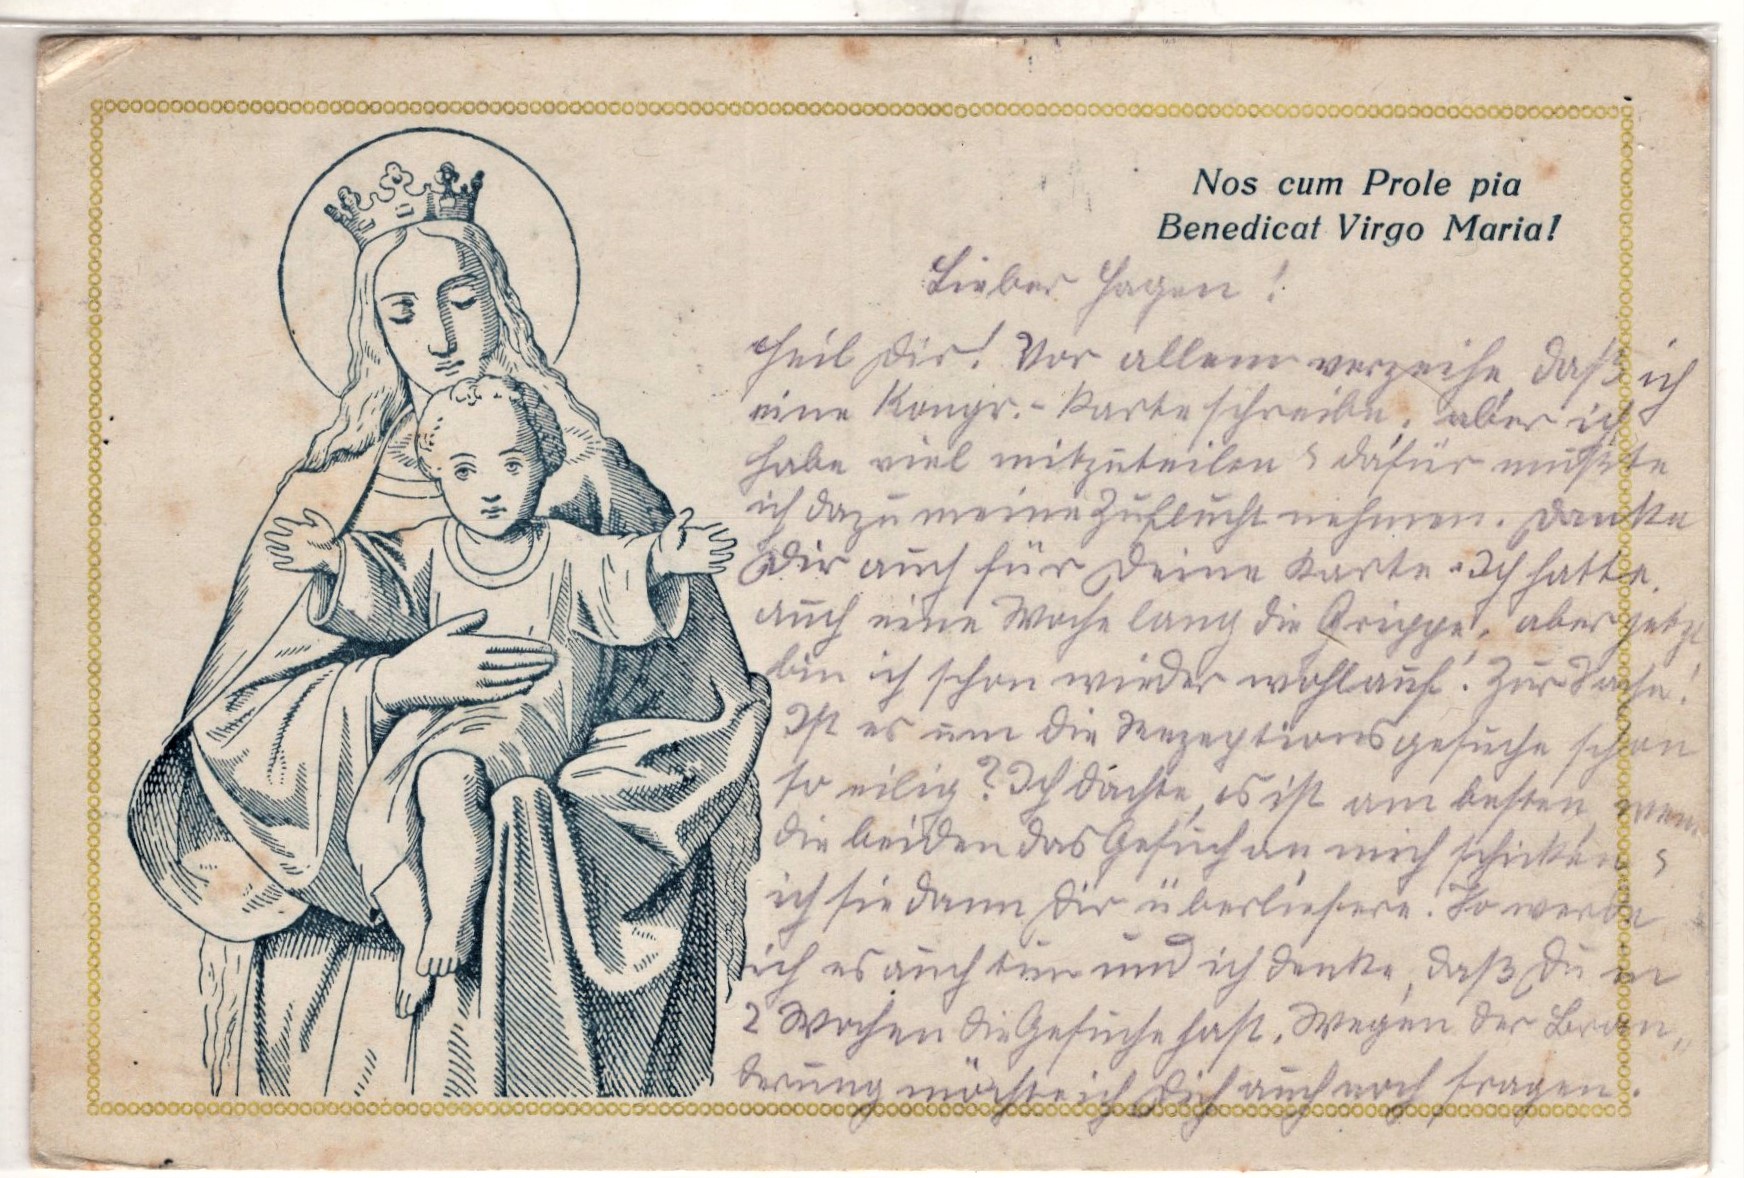 Nos cum Prole pia
Benedicat Virgo Maria!
Lieber Hagen!
Heil Dir! Vor allem verzeihe, daß ich
eine Kongr.-Karte schreibe, aber ich
habe viel mitzuteilen & dafür mußte
ich dazu meine Zuflucht nehmen. Danke
Dir auch für Deine Karte. Ich hatte
auch eine Woche lang die Grippe, aber jetzt
bin ich schon wieder wohlauf! Zur Sache!
Ist es um die Rezeptionsgesuche schon
so eilig? Ich dachte, es ist am besten, wenn
die beiden das Gesuch an mich schicken &
ich sie dann Dir überliefere. So werde
ich es auch tun und ich denke, daß Du in
2 Wochen die Gesuche hast. Wegen der Bran„
derung möchte ich Dich auch noch fragen.